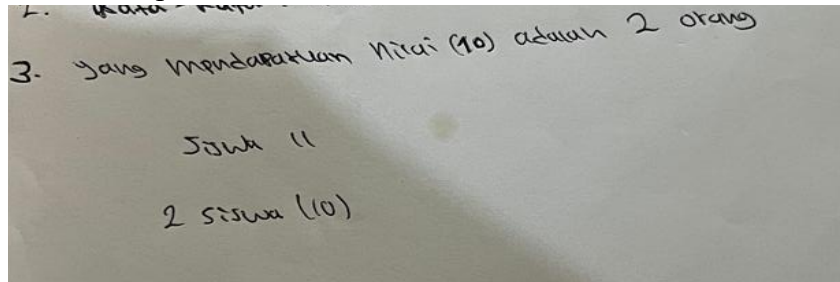 2. Rata-rata
3. yang mendapatkan nilai (10) adalah 2 orang
Siswa 11
2 siswa (10)